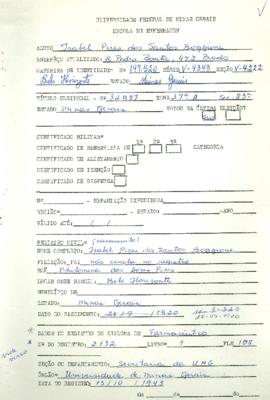 UNIVERSIDADE FEDERAL DE MINAS GERAIS
ESCOLA DE ENFERMAGEM
ALUNO Izabel Pires dos Santos Boggione
ENDEREÇO ATUALIZADO: R. Padre
CARTEIRA DE IDENTIDADE - Nº 147.520 SÉRIE V-4343 SEÇÃO V-4222
Belo Horizonte Minas Gerais
TÍTULO ELEITORAL - Nº ZONA 27ª Sec. 83ª
ESTADO Minas Gerais VOTOU NA ÚLTIMA ELEIÇÃO?
CERTIFICADO MILITAR
CERTIFICADO DE RESERVISTA DE 1ª 2ª 3ª CATEGORIA
CERTIFICADO DE ALISTAMENTO
CERTIFICADO DE ISENÇÃO
CERTIFICADO DE DISPENSA
Nº - ORGANIZAÇÃO EXPEDIDORA
REGIÃO - ESTADO - ANO
VÁLIDO ATÉ: / /
REGISTRO CIVIL (casamento)
NOME COMPLETO: Izabel Pires dos Santos Boggione
FILIAÇÃO: PAI não consta no registro
MÃE Philomena das Dores Pires
LUGAR ONDE NASCEU: Belo Horizonte
MUNICÍPIO DE
ESTADO: Minas Gerais
DATA DO NASCIMENTO: / 1920
DADOS DO REGISTRO DO DIPLOMA DE Farmacêutico
Nº DO REGISTRO: 2132 LIVRO 1 FLS 108
SEÇÃO OU DEPARTAMENTO: Secretaria da UMG
ÓRGÃO: Universidade de Minas Gerais
DATA DO REGISTRO 13/10/1943
de de